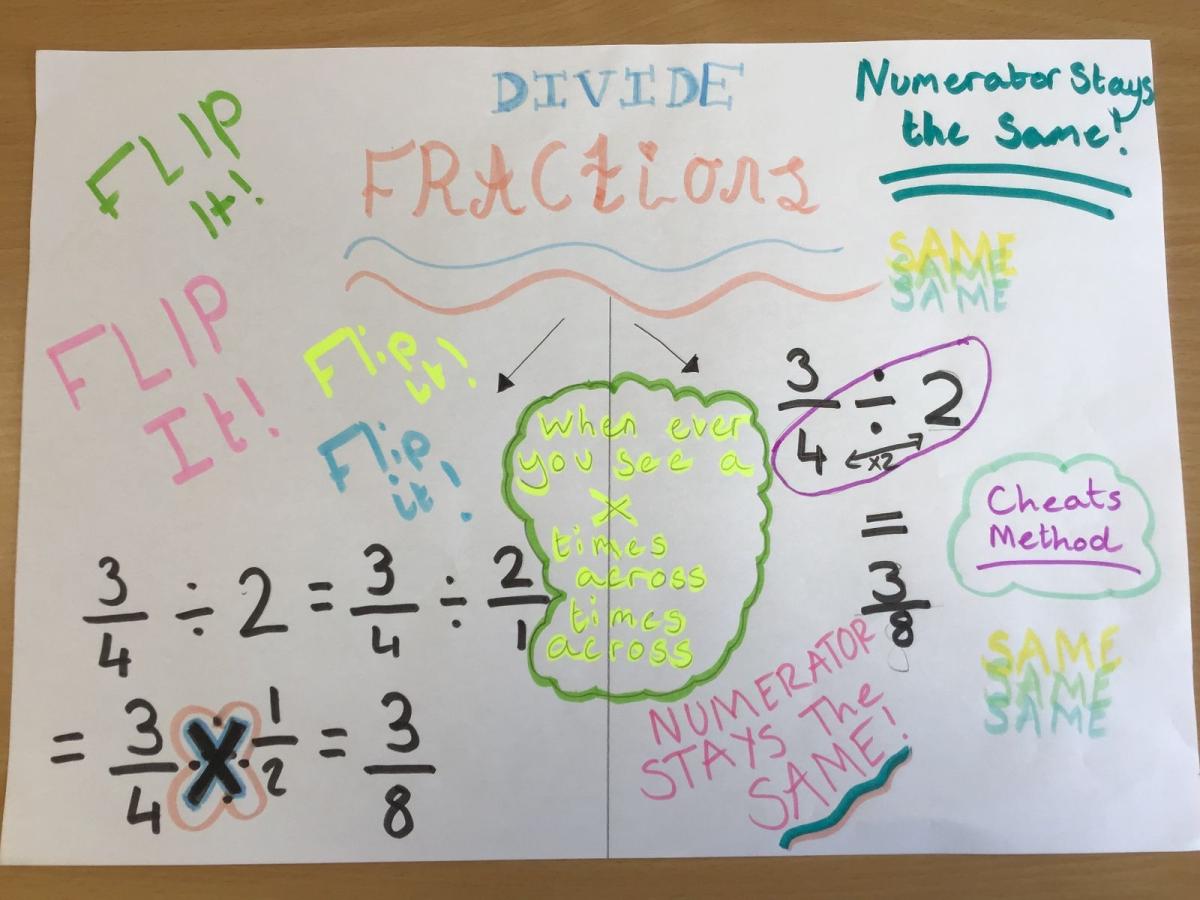 DIVIDE
FRACTIONS
FLIP
It!
FLIP
It!
Flip
it!
Flip
it!
3/4 ÷ 2 = 3/4 ÷ 2/1
= 3/4 X 1/2 = 3/8
When ever
you see a
X
times
across
times
across
Numerator Stays
the Same!
SAME
SAME
SAME
3/4 ÷ 2
x2
=
3/8
Cheats
Method
NUMERATOR
STAYS The
SAME!
SAME
SAME
SAME